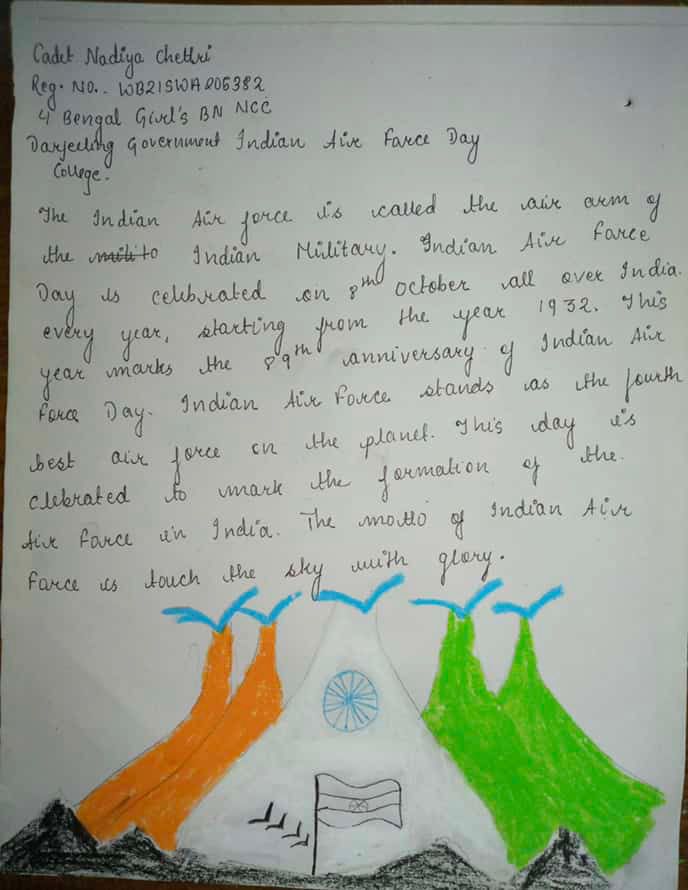 Cadet Nadiya Chettri
Reg. No.. WB21SWA205382
4 Bengal Girl's BN NCC
Darjeeling Government Indian Air Farce Day
College.
The Indian Air force is called the air arm of
the Indian Military. Indian Air Farce
Day is celebrated on 8th October all over India.
every year, starting from the year 1932. This
year marks the 89th anniversary of Indian Air
Force Day. Indian Air Force stands as the fourth
best air force on the planet. This day is
clebrated to mark the formation of the.
Air Farce in India. The motto of Indian Air
Farce is touch the sky with glory.